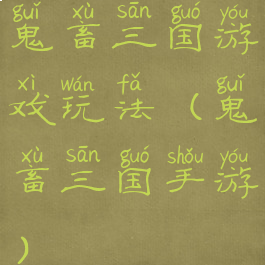 guǐ xù sān guó yóu
鬼畜三国游
xì wán fǎ guǐ
戏玩法(鬼
xù sān guó shǒu yóu
畜三国手游
)